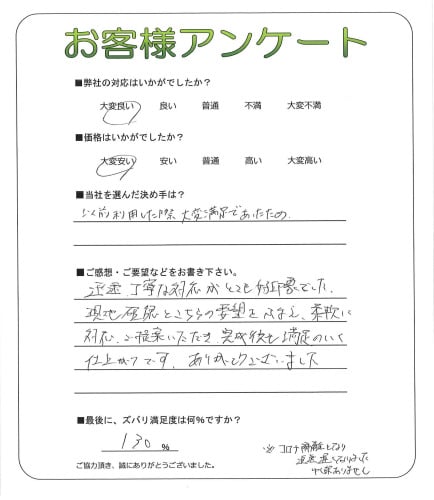 お客様アンケート
■弊社の対応はいかがでしたか?
大変良い 良い 普通 不満 大変不満
■価格はいかがでしたか?
大変安い 安い 普通 高い 大変高い
■当社を選んだ決め手は?
以前利用した際、大変満足であったため
■ご感想・ご要望などをお書き下さい。
迅速、丁寧な対応がとても好印象でした。
現地確認とこちらの要望をふまえ、柔軟に
対応、ご提案いただき、完成後も満足のいく
仕上がりです。ありがとうございました
■最後に、ズバリ満足度は何%ですか?
130 %
※コロナ
返送遅くなりました
申し訳ありません
ご協力頂き、誠にありがとうございました。